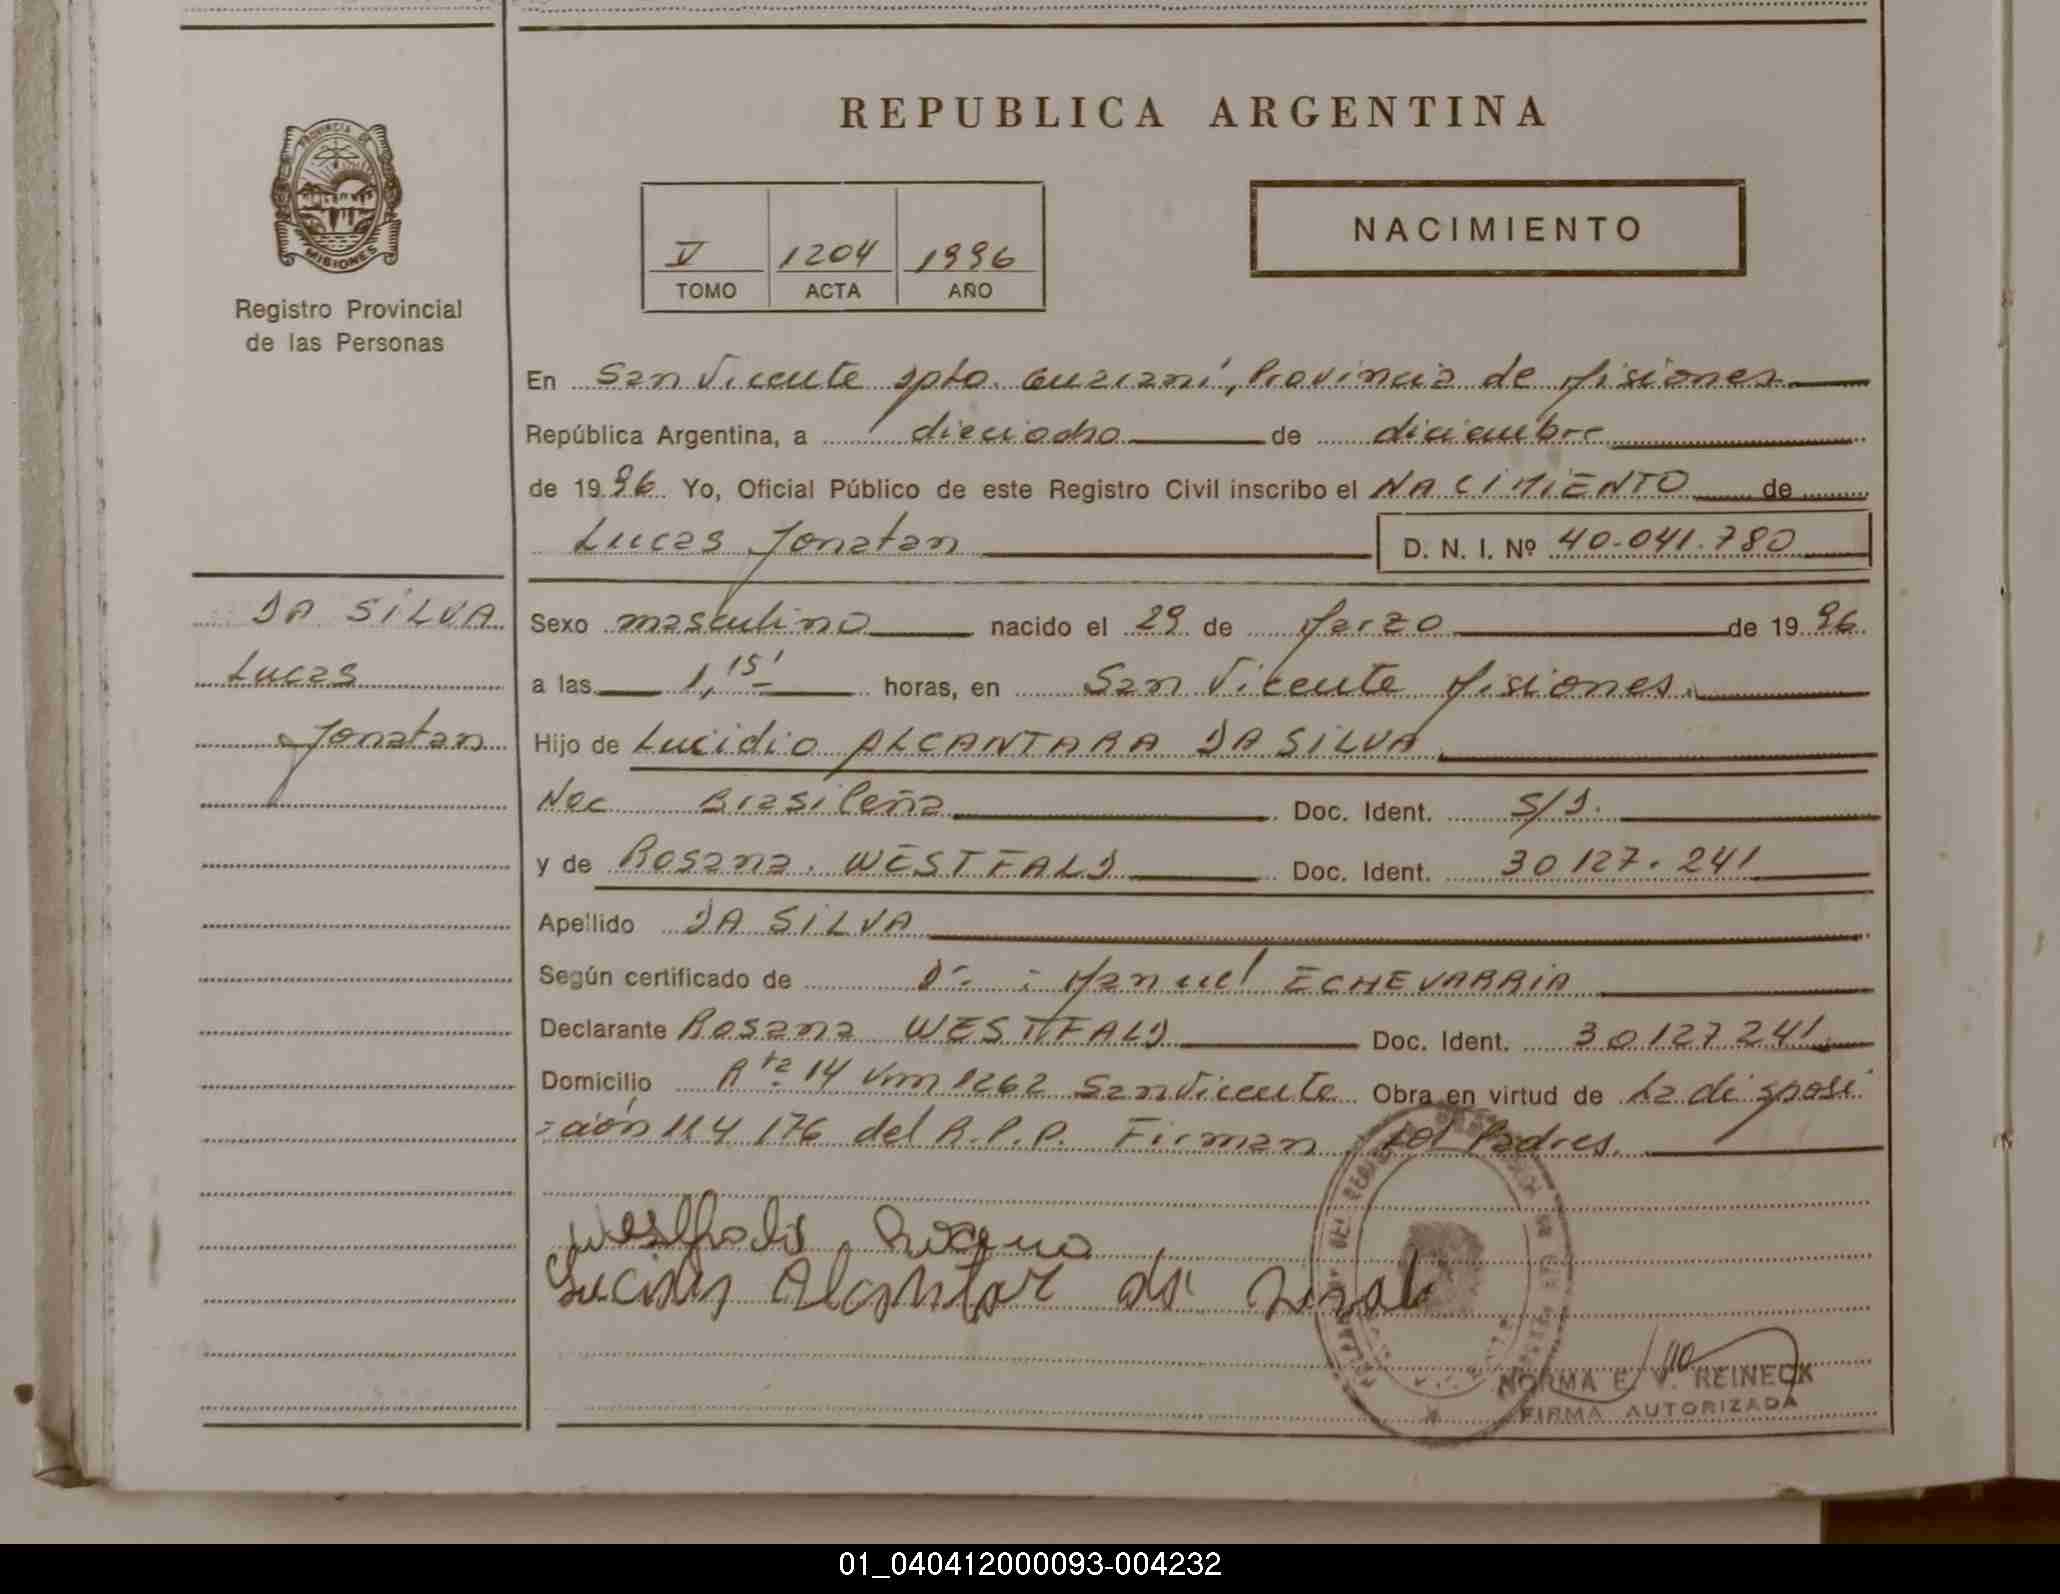 REPUBLICA ARGENTINA
PROVINCIA DE
MISIONES
Registro Provincial
de las Personas
V 1204 1996
TOMO ACTA AÑO
NACIMIENTO
En San Vicente Dpto. Guaraní, Provincia de Misiones
República Argentina, a dieciocho de diciembre
de 1996 Yo, Oficial Público de este Registro Civil inscribo el NACIMIENTO de
Lucas Jonatan D. N. I. Nº 40.041.780
DA SILVA
Lucas
Jonatan
Sexo masculino nacido el 29 de Marzo de 1996
a las 1,15' horas, en San Vicente Misiones.
Hijo de Lucidio ALCANTARA DA SILVA
Nac Brasileña Doc. Ident. S/D.
y de Rosana WESTFALD Doc. Ident. 30127.241
Apellido DA SILVA
Según certificado de Dr. Manuel ECHEVARRIA
Declarante Rosana WESTFALD Doc. Ident. 30127241
Domicilio Rta 14 Km 1262 San Vicente Obra en virtud de La disposi
=ción 114/176 del R.P.P. Firman Padres.
Rosana
Alcantar da
NORMA E. V. REINECK
FIRMA AUTORIZADA
01_040412000093-004232